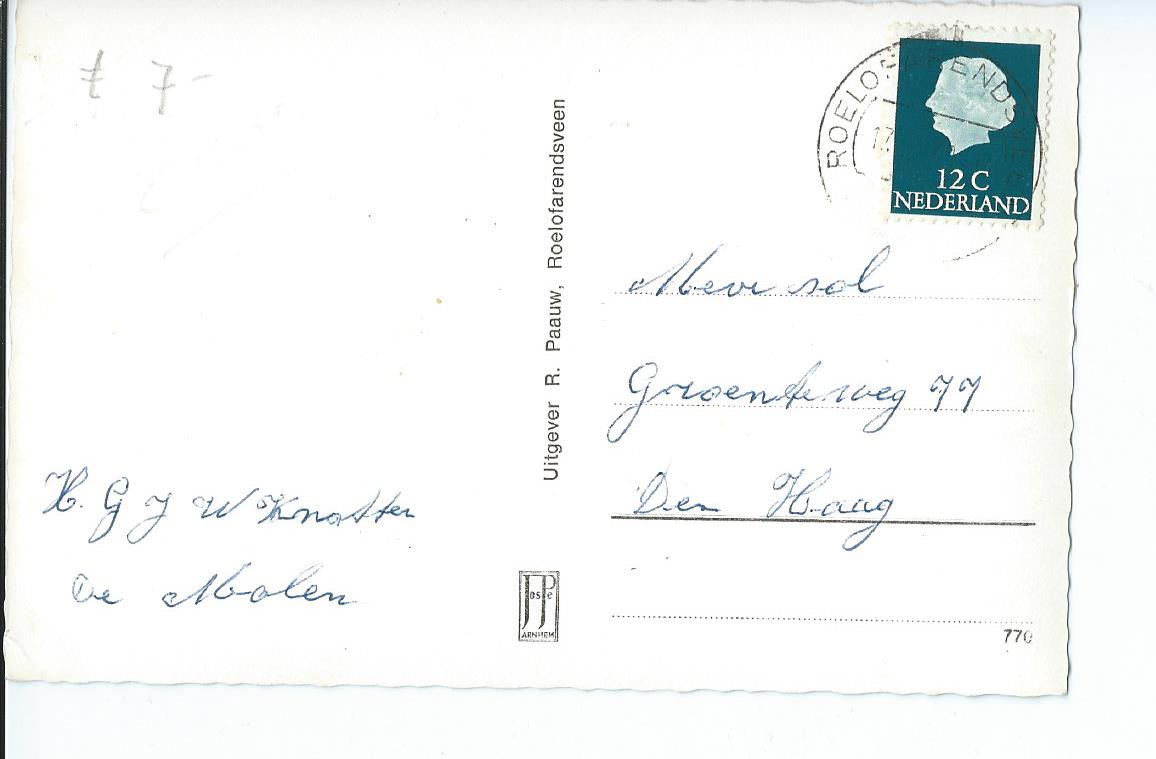 7-
H. G J W Knotter
De Molen
Uitgever R. Paauw, Roelofarendsveen
JosPe
ARNHEM
ROELOFARENDSVEEN
17.
12 C
NEDERLAND
Mevr sol
Groenteweg 77
Den Haag
770